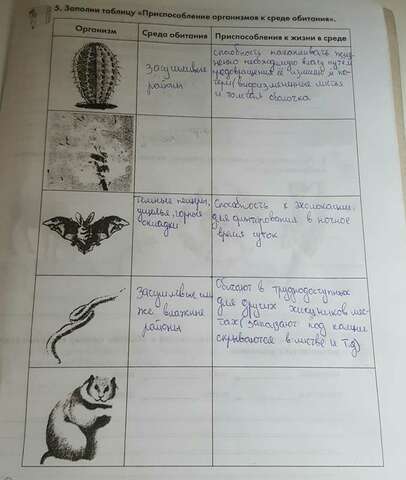 5. Заполни таблицу «Приспособление организмов к среде обитания».
Организм Среда обитания Приспособления к жизни в среде
Засушливые
районы
способность накапливать
необходимую влагу путём
и
видоизменённые листья
и толстая оболочка
Темные пещеры,
ущелья, горные
складки
Способность к эхолокации,
для функционирования в ночное
время суток
Засушливые или
же влажные
районы
Обитают в труднодоступных
для других хищников мес-
тах (заползают под камни
скрываются в листве и т.д)